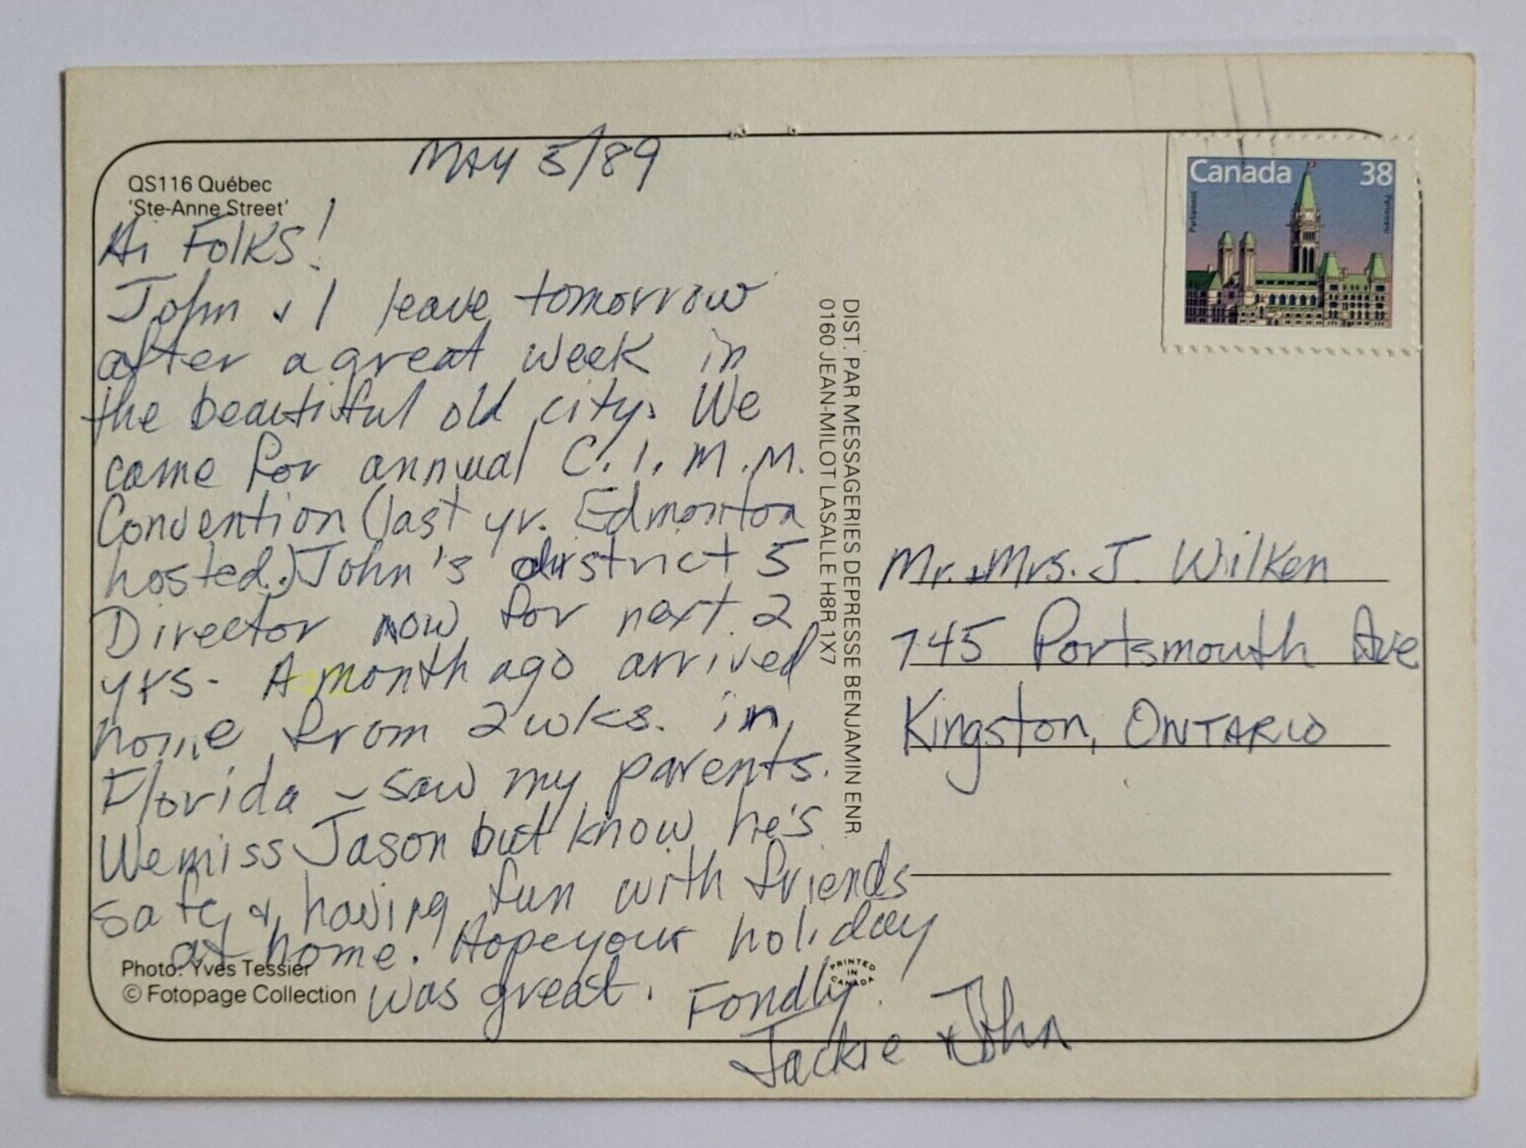 MAY 5/89
QS116 Québec
'Ste-Anne Street'
Hi Folks!
John & I leave tomorrow
after a great week in
the beautiful old city. We
came for annual C.I.M.M.
Convention (last yr. Edmonton
hosted.) John's district 5
Director now for next 2
yrs. A month ago arrived
home from 2 wks. in
Florida - saw my parents.
We miss Jason but know he's
safe & having fun with friends
at home. Hope your holiday
was great. Fondly
Jackie & John
Photo: Yves Tessier
© Fotopage Collection
DIST. PAR MESSAGERIES DEPRESSE BENJAMIN ENR.
0160 JEAN-MILOT LASALLE H8R 1X7
PRINTED
IN
CANADA
Canada 38
Parliament
Parlement
Mr. & Mrs. J. Wilken
745 Portsmouth Ave
Kingston, ONTARIO